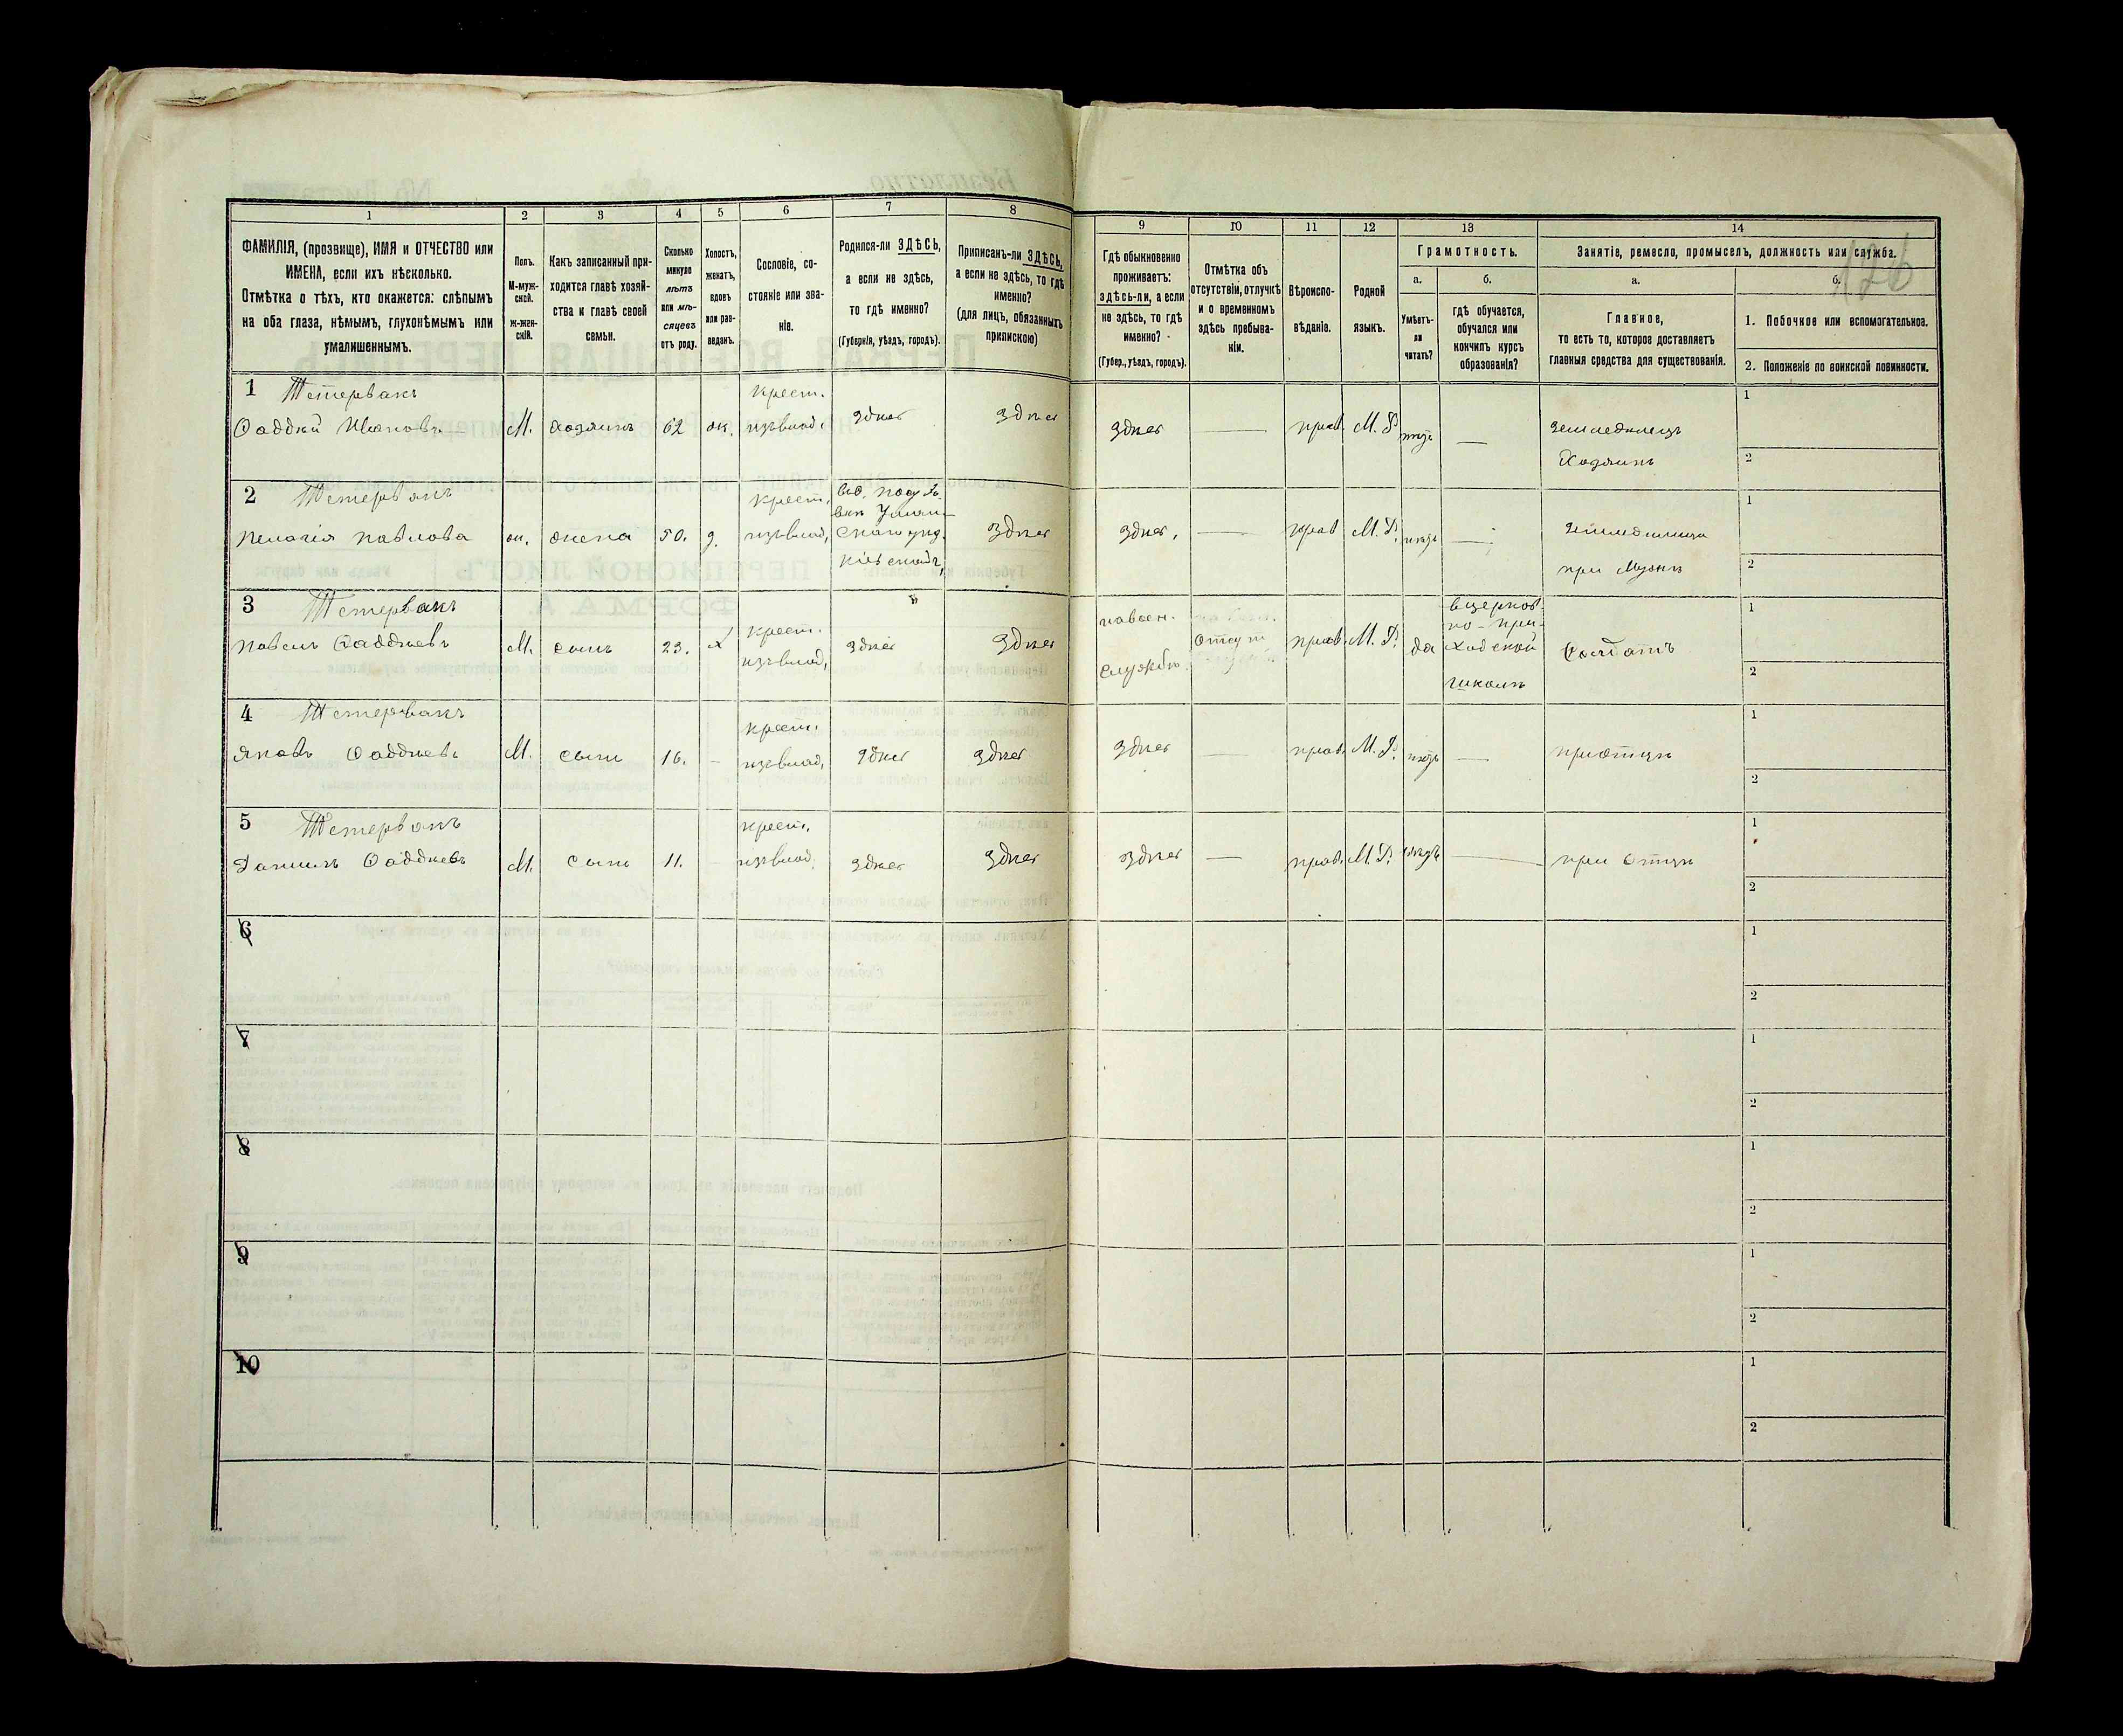 1 2 3 4 5 6 7 8 9 10 11 12 13 14
ФАМИЛІЯ, (прозвище), ИМЯ и ОТЧЕСТВО или
ИМЕНА, если ихъ нѣсколько.
Отмѣтка о тѣхъ, кто окажется: слѣпымъ
на оба глаза, нѣмымъ, глухонѣмымъ или
умалишеннымъ.
Полъ.
М-муж-
ской.
ж-жен-
скій.
Какъ записанный при-
ходится главѣ хозяй-
ства и главѣ своей
семьи.
Сколько
минуло
лѣтъ
или мѣ-
сяцевъ
отъ роду.
Холостъ,
женатъ,
вдовъ
или раз-
веденъ.
Сословіе, со-
стояніе или зва-
ніе.
Родился-ли ЗДѢСЬ,
а если не здѣсь,
то гдѣ именно?
(Губернія, уѣздъ, городъ).
Приписанъ-ли ЗДѢСЬ,
а если не здѣсь, то гдѣ
именно?
(для лицъ, обязанныхъ
припискою)
Гдѣ обыкновенно
проживаетъ:
здѣсь-ли, а если
не здѣсь, то гдѣ
именно?
(Губер., уѣздъ, городъ).
Отмѣтка объ
отсутствіи, отлучкѣ
и о временномъ
здѣсь пребыва-
ніи.
Вѣроиспо-
вѣданіе.
Родной
языкъ.
Грамотность.
а.
Умѣетъ-
ли
читать?
б.
гдѣ обучается,
обучался или
кончилъ курсъ
образованія?
Занятіе, ремесло, промыселъ, должность или служба.
а.
Главное,
то есть то, которое доставляетъ
главныя средства для существованія.
б.
126
1. Побочное или вспомогательное.
2. Положеніе по воинской повинности.
1 Тетервакъ крест. 1
Фаддѣй Ивановъ М. хозяинъ 62 ж. изъ влад. здѣсь здѣсь здѣсь — прав. М. Р. нѣтъ — Земледѣлецъ
Хозяинъ 2
2 Тетервакъ крест. 1
Пелагія Павлова ж. жена 50. з. изъ влад. здѣсь здѣсь, — прав М. Р. нѣтъ —
Кіевской г.
при мужѣ 2
3 Тетервакъ крест. 1
Павелъ Фаддѣевъ М. сынъ 23. х изъ влад. здѣсь здѣсь
на воен.
службѣ.
прав. М. Р. да
въ церков-
но-при-
ходской
школѣ
Солдатъ 2
4 Тетервакъ крест. 1
Яковъ Фаддѣевъ М. сынъ 16. — изъ влад. здѣсь здѣсь здѣсь — прав. М. Р. нѣтъ — при отцѣ
2
5 Тетервакъ крест. 1
Даніилъ Фаддѣевъ М. сынъ 11. — изъ влад. здѣсь здѣсь здѣсь — прав. М. Р. нѣтъ — при отцѣ
2
6 1
2
7 1
2
8 1
2
9 1
2
10 1
2